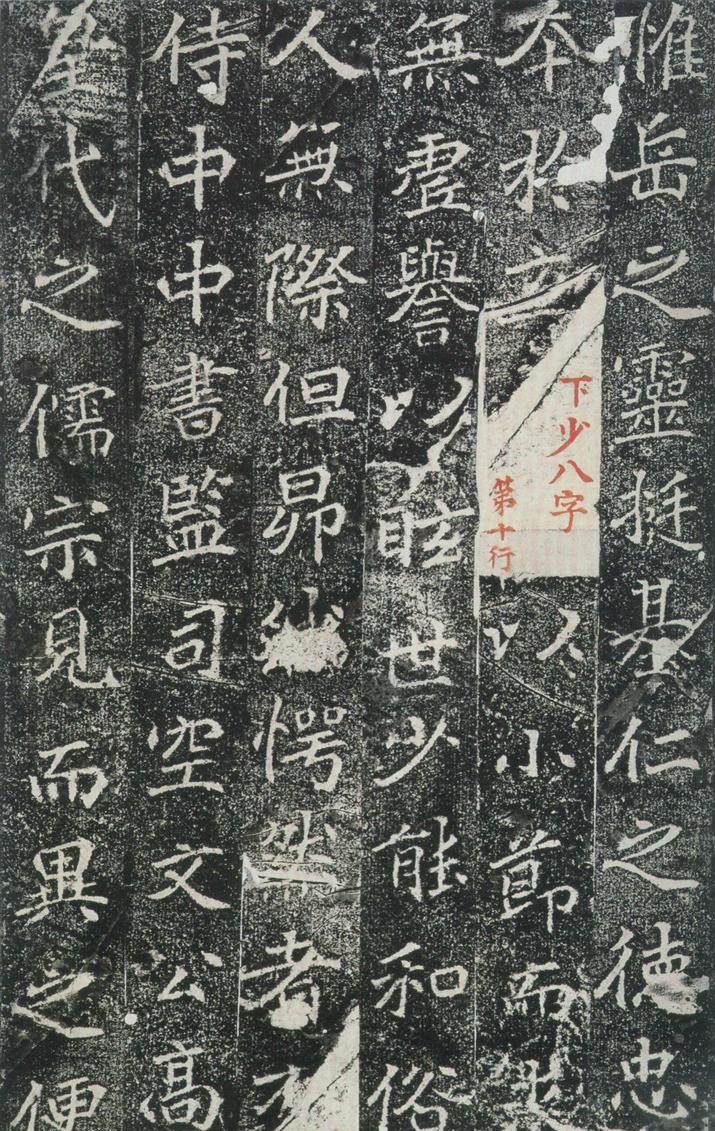 惟岳之靈挺基仁之德忠
本於立
下少八字
第十行
以小節而
無虛譽以眩世少能和俗
人無際但昂愕然者
侍中中書監司空文公高
代之儒宗見而異之便